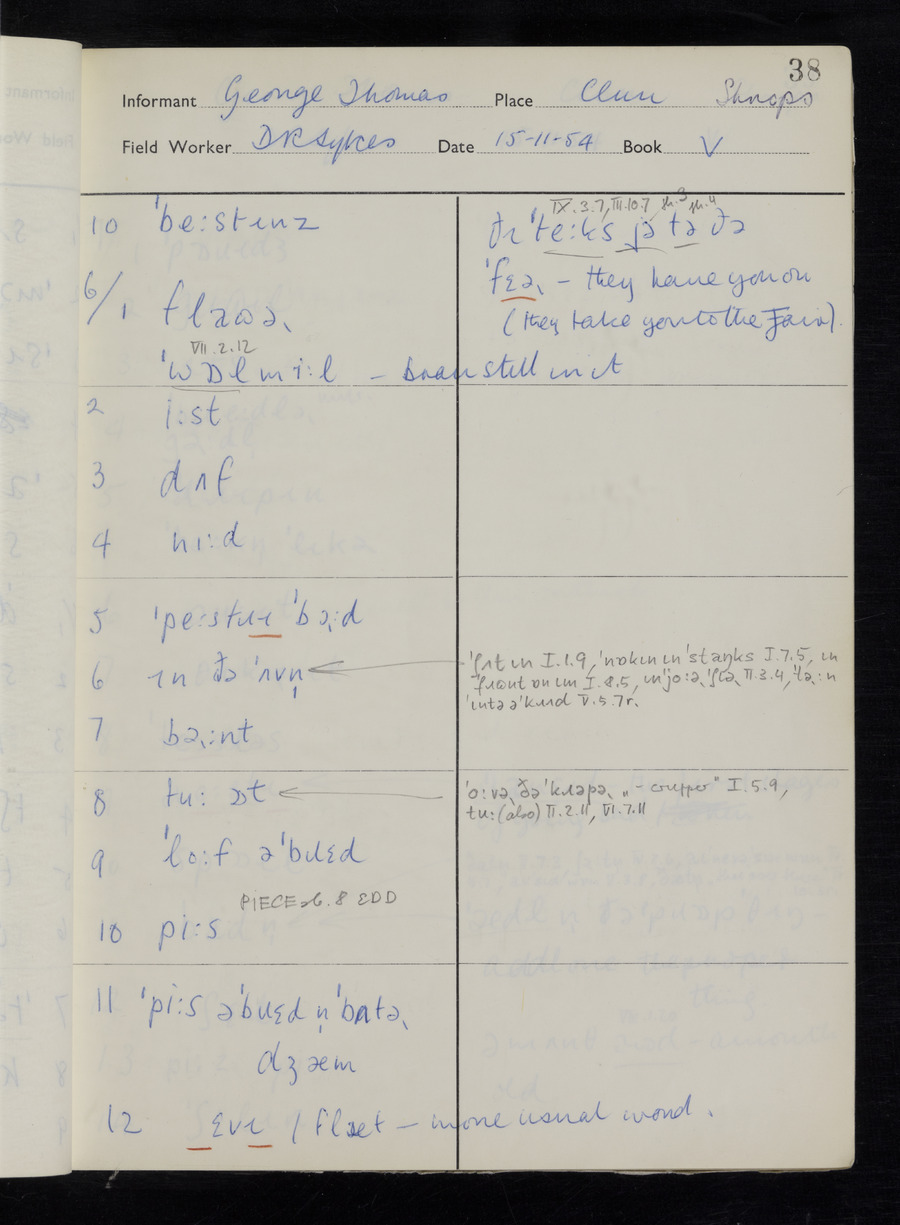 38
Informant George Thomas Place Clun Shrops
Field Worker D R Sykes Date 15-11-54 Book V
10 ˈbeːstɪnz
IX.3.7, III.10.7
ˈteːks jə tə ðə
ˈfɛə˞ – they have you on
(they take you to the Fair).
6/1 flaʊə˞
VII.2.12
ˈwɒlmiːl – bran still in it
2 iːst
3 dʌf
4 hɪːd
5 ˈpeːstɹɪ ˈbɔːd
6 ɪn ðə ˈʌvn̩
ˈʃʌt ɪn I.1.9, ˈnɒkɪn ɪn ˈstaŋks I.7.5, ɪn
ˈfɹɒnt ɒn ɪm I.8.5, ɪn jɔːə˞ ˈʃtə˞ II.3.4, ˈtə˞ːn
ˈɪntə ə ˈkɹʊd V.5.7r.
7 bə˞ːnt
8 tuː ɒt
ˈoːvə˞ ðə ˈkrapə˞ „-crupper" I.5.9,
tuː (also) II.2.11, VI.7.11
9 ˈloːf ə ˈbɹɛd
PIECE sb. 8 EDD
10 piːs
11 ˈpiːs ə ˈbɹɛd n̩ ˈbʌtə˞
dʒæm
12 ɛvɪ / flæt – more usual word.